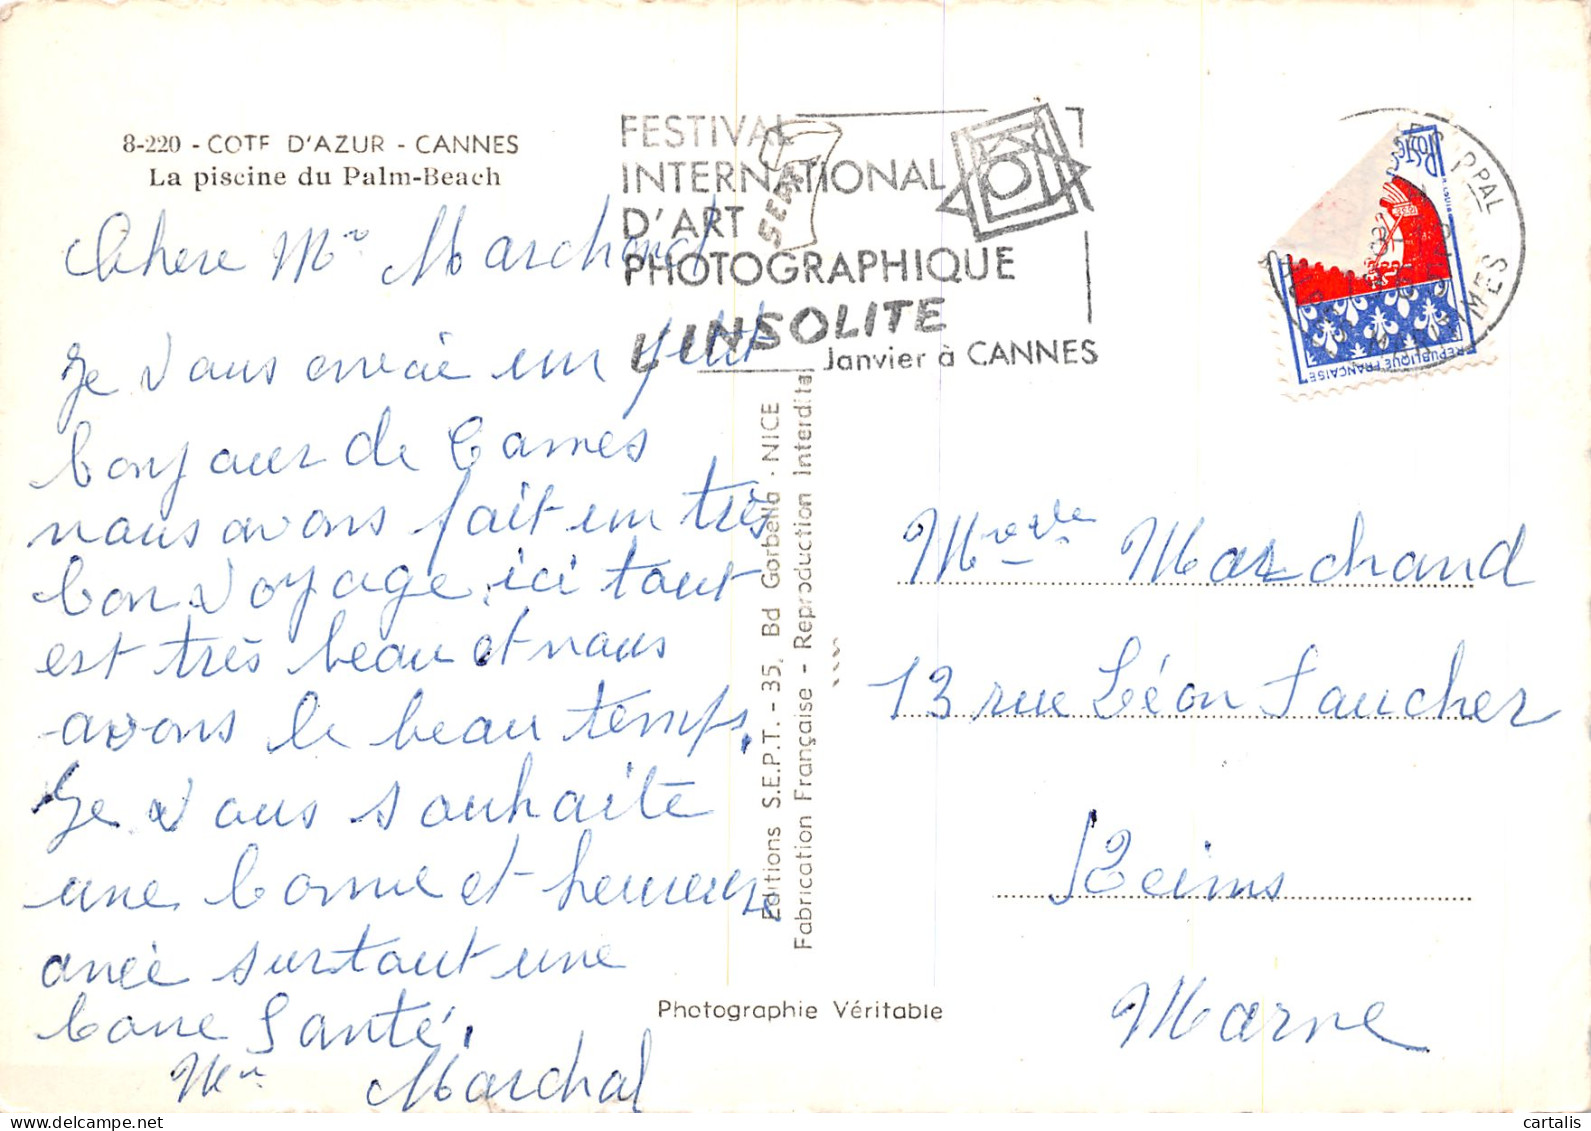 8-220 - COTE D'AZUR - CANNES
La piscine du Palm-Beach
FESTIVAL
INTERNATIONAL
D'ART
PHOTOGRAPHIQUE
L'INSOLITE
Janvier à CANNES
SEPT
POSTES
REPUBLIQUE FRANÇAISE
Chere Me Marchand
Je vous envoie un petit
bonjour de Cannes
nous avons fait un très
bon voyage, ici tout
est très beau et nous
avons le beau temps.
Je vous souhaite
une bonne et heureuse
anée surtout une
bone Santé.
Me Marchal
Editions S.E.P.T. - 35, Bd Gorbella - NICE
Fabrication Française - Reproduction Interdite
Photographie Véritable
Mme Vve Marchand
13 rue Léon Faucher
Reims
Marne
cartalis